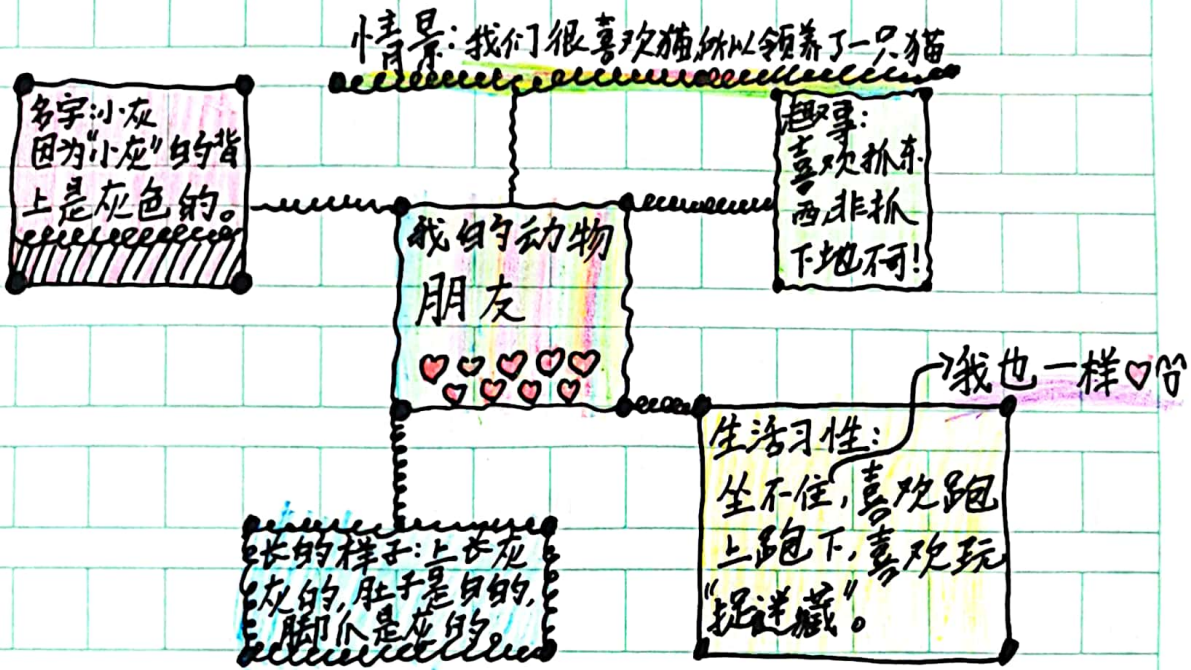 情景：我们很喜欢猫所以领养了一只猫
名字：小灰
因为“小灰”的背
上是灰色的。
趣事：
喜欢抓东
西,非抓
下地不可！
我的动物
朋友
我也一样
生活习性：
坐不住，喜欢跑
上跑下，喜欢玩
“捉迷藏”。
长的样子：上长灰
灰的，肚子是白的，
脚爪是灰的。